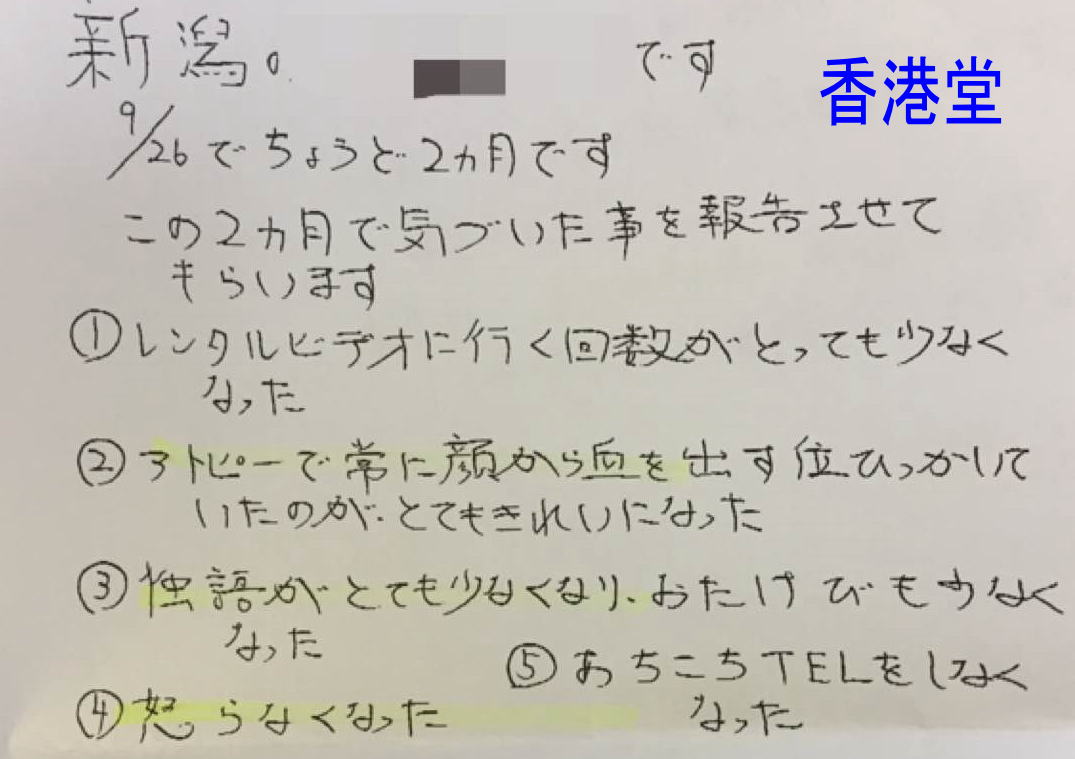 新潟。 です
香港堂
9/26でちょうど2ヵ月です
この2ヵ月で気づいた事を報告させて
もらいます
①レンタルビデオに行く回数がとっても少なく
なった
②アトピーで常に顔から血を出す位ひっかいて
いたのが、とてもきれいになった
③独語がとても少なくなり、おたけびも少なく
なった
④怒らなくなった
⑤あちこちTELをしなく
なった